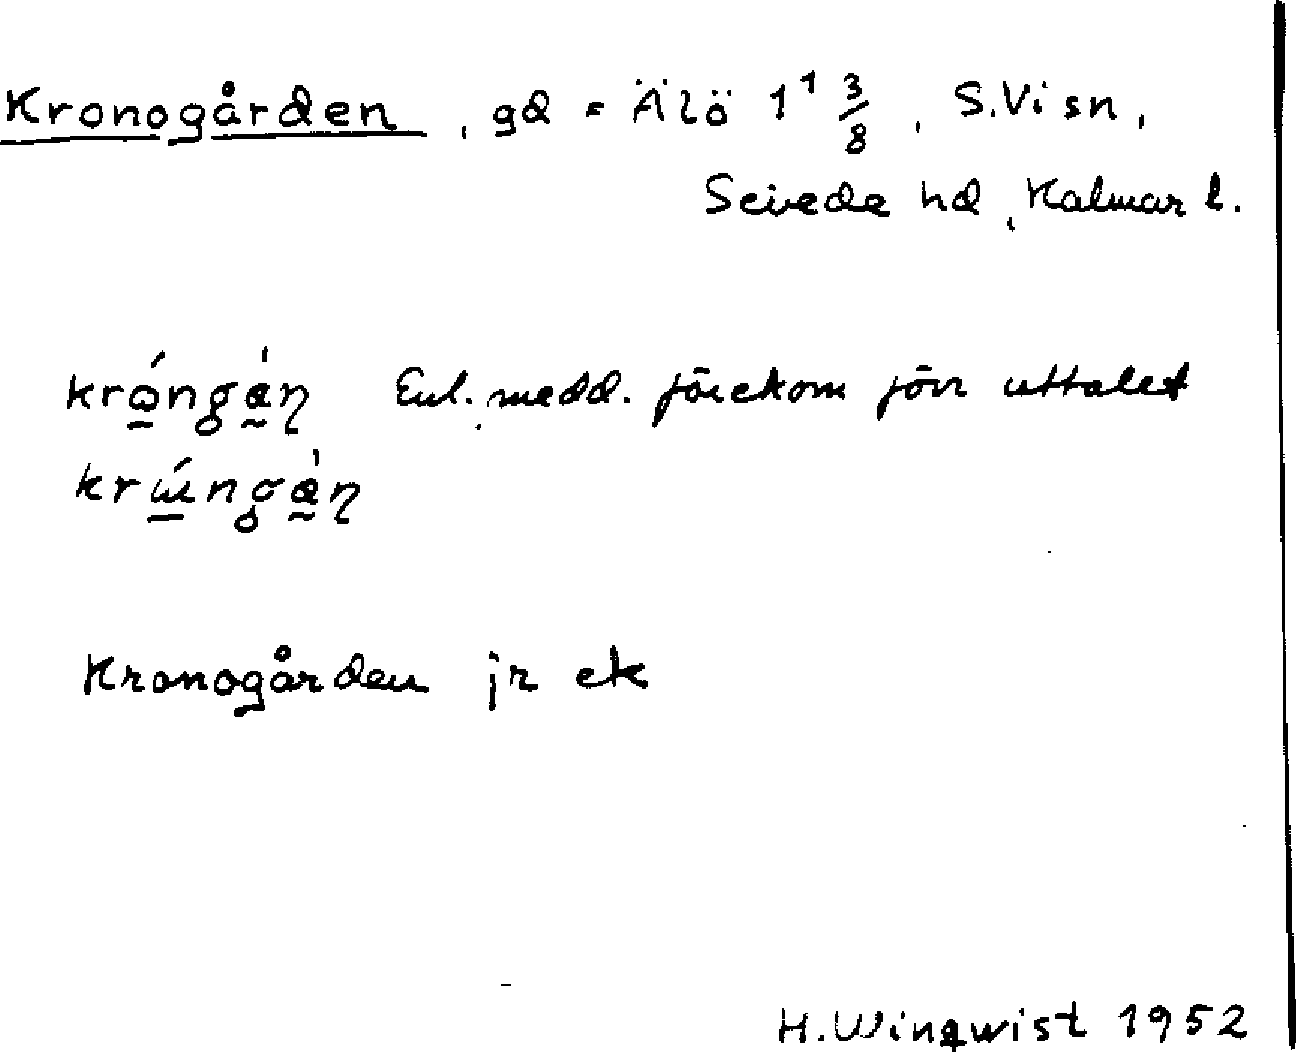 Kronogården, gd = Älö 1¹ 3/8, S.Vi sn,
Sevede hd, Kalmar l.
krǫ́nga̰̍ɳ Enl. medd. förekom förr uttalet
krɯ́nga̰̍ɳ
Kronogården jr ek
H. Winqwist 1952